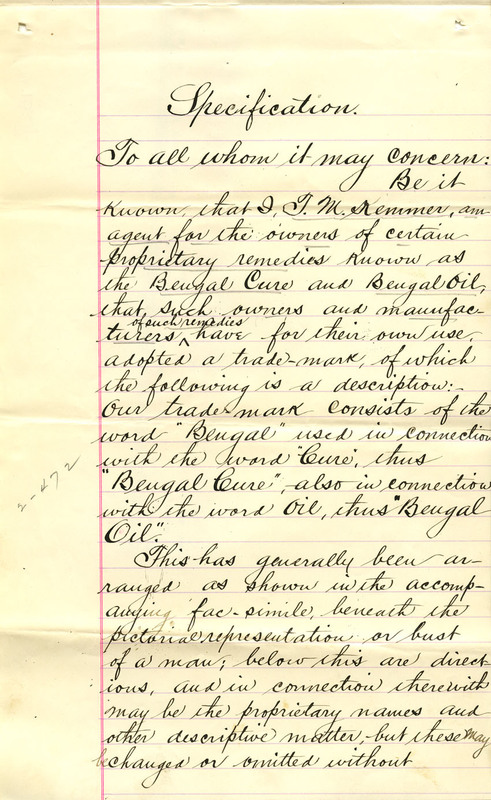 Specification.
To all whom it may concern:
Be it
known, that I, T. M. Kemmer, am
agent for the owners of certain
proprietary remedies known as
the Bengal Cure and Bengal Oil,
that, such owners and manufac-
of such remedies
turers ^ have for their own use,
adopted a trade-mark, of which
the following is a description:-
Our trade-mark consists of the
word "Bengal" used in connection
with the word "Cure", thus
"Bengal Cure", also in connection
with the word Oil, thus "Bengal
Oil".
This has generally been ar-
ranged as shown in the accomp-
anying fac-simile, beneath the
pictorial representation or bust
of a man; below this are direct-
ions, and in connection therewith
may be the proprietary names and
other descriptive matter, but these may
be changed or omitted without
2-472